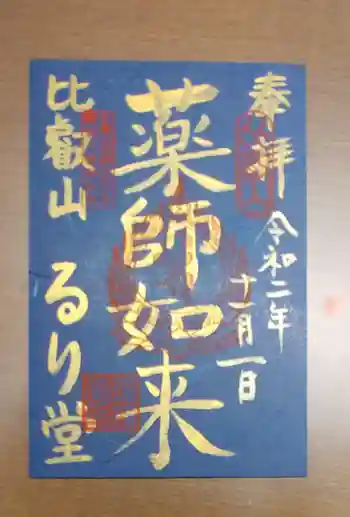 奉拝
令和二年
十一月一日
薬師如来
比叡山 るり堂